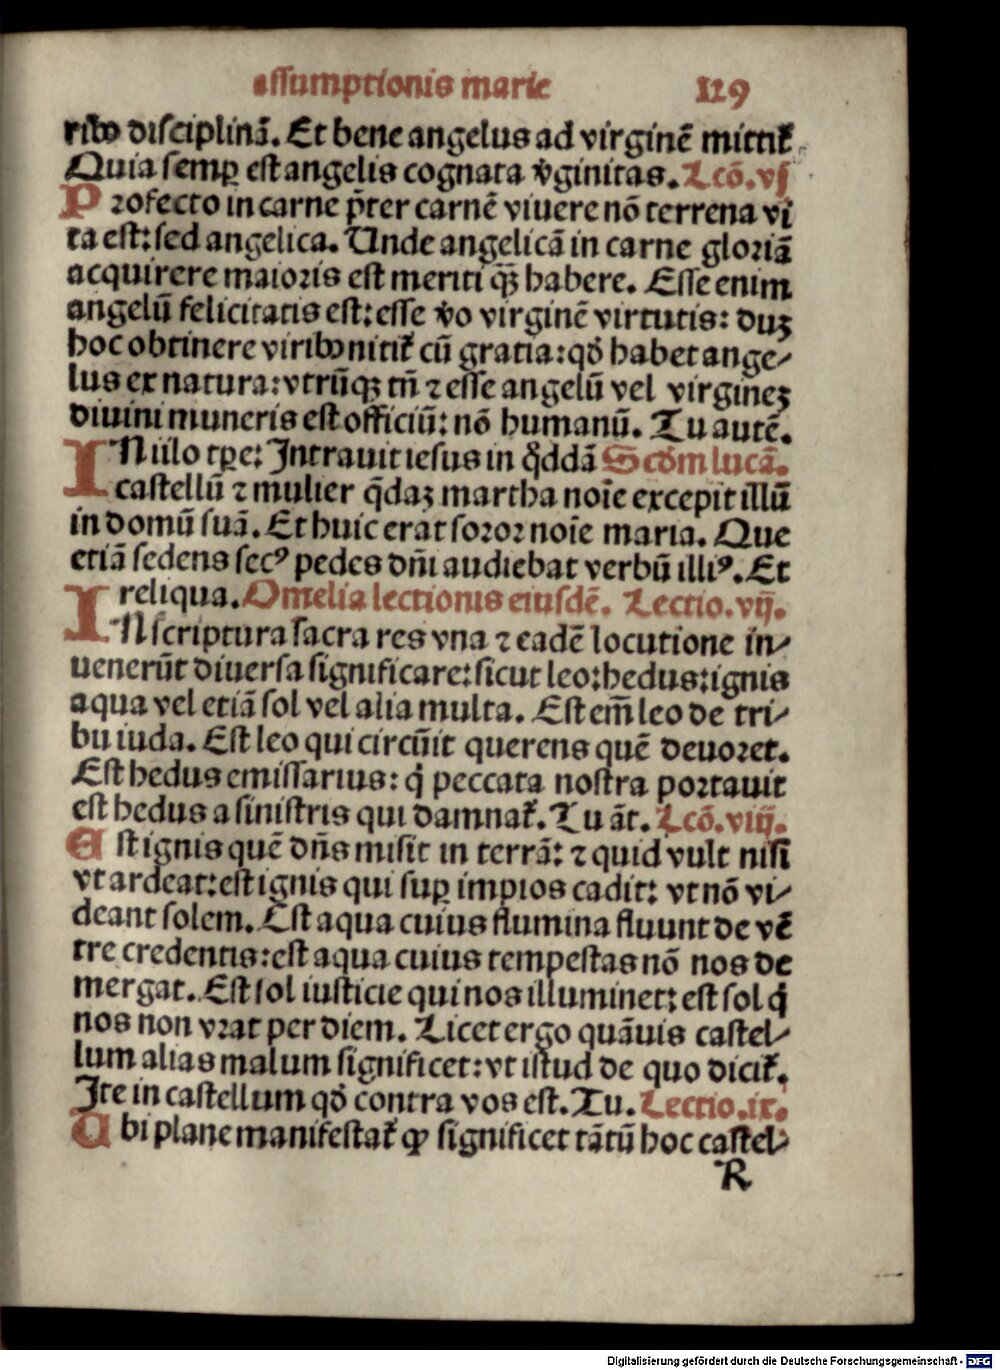 assumptionis marie 119
ribꝰ disciplinā. Et bene angelus ad virginē mittit᷑
Quia semꝑ est angelis cognata v̓ginitas. Lcō. vj
Profecto in carne p̄ter carnē viuere nō terrena vi
ta est: sed angelica. Unde angelicā in carne gloriā
acquirere maioris est meriti q̄ꝫ habere. Esse enim
angelū felicitatis est: esse v̓o virginē virtutis: duꝫ
hoc obtinere viribꝰ nitit᷑ cū gratia: qd̓ habet ange-
lus ex natura: vtrūqꝫ tn̄ ⁊ esse angelū vel virgineꝫ
diuini muneris est officiū: nō humanū. Tu autē.
IN illo tꝑe: Intrauit iesus in q̓ddā Scd̓m lucā.
castellū ⁊ mulier q̄daꝫ martha noīe excepit illū
in domū suā. Et huic erat soror noīe maria. Que
etiā sedens secꝰ pedes dn̄i audiebat verbū illiꝰ. Et
reliqua. Omelia lectionis eiusdē. Lectio. vij.
IN scriptura sacra res vna ⁊ eadē locutione in-
uenerūt diuersa significare: sicut leo: hedus: ignis
aqua vel etiā sol vel alia multa. Est em̄ leo de tri-
bu iuda. Est leo qui circūit querens quē deuoret.
Est hedus emissarius: q̓ peccata nostra portauit
est hedus a sinistris qui damnat᷑. Tu āt. Lcō. viij.
Est ignis quē dn̄s misit in terrā: ⁊ quid vult nisi
vt ardeat: est ignis qui suꝑ impios cadit: vt nō vi-
deant solem. Est aqua cuius flumina fluunt de vē
tre credentis: est aqua cuius tempestas nō nos de
mergat. Est sol iusticie qui nos illuminet: est sol q̓
nos non vrat per diem. Licet ergo quāuis castel-
lum alias malum significet: vt istud de quo dicit᷑.
Ite in castellum qd̓ contra vos est. Tu. Lectio. ix.
Ubi plane manifestat᷑ ꝙ significet tātū hoc castel-
R
Digitalisierung gefördert durch die Deutsche Forschungsgemeinschaft - DFG